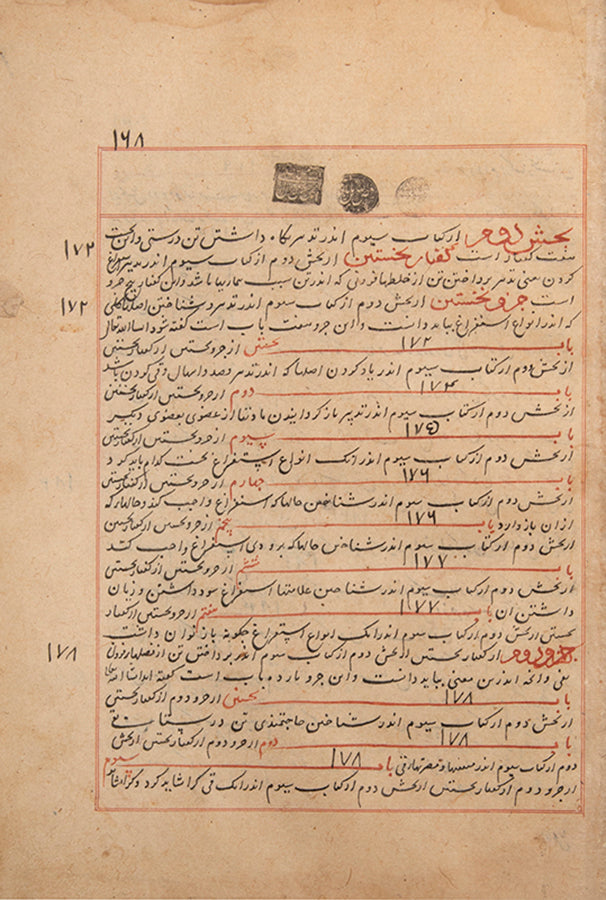 ۱۶۸
بخش دوم از کتاب سیوم اندر تدبیر نگاه داشتن تن درستی و این بخش
هفت گفتار است گفتار نخستین از بخش دوم از کتاب سیوم اندر تدبیر استفراغ
۱۷۲
کردن یعنی تدبیر پرداختن تن از خلطها و فزونی که اندر تن سبب بیماریها باشد و این گفتار پنج جزو
است جزو نخستین از بخش دوم از کتاب سیوم اندر تدبیر و شناختن اصلها کلی
۱۷۲
که اندر انواع استفراغ بباید دانست و این جزو هفت باب است گفته شود انشاالله تعالی
باب ۱۷۲ نخستین از جزو نخستین از گفتار نخستین
از بخش دوم از کتاب سیوم اندر یاد کردن اصلها که اندر تدبیر فصد و اسهال و قی کردن باشد
باب ۱۷۴ دوم از جزو نخستین از گفتار نخستین
از بخش دوم از کتاب سیوم اندر تدبیر باز گردانیدن مادتها از عضوی بعضوی دیگر
باب ۱۷۵ سیوم از جزو نخستین از گفتار نخستین
از بخش دوم از کتاب سیوم اندر آنک انواع استفراغ نخست کدام باید کرد
باب ۱۷۶ چهارم از جزو نخستین از گفتار نخستین
از بخش دوم از کتاب سیوم اندر شناختن حالها که استفراغ واجب کند و حالها که
از آن باز دارد باب ۱۷۶ پنجم از جزو نخستین از گفتار نخستین
از بخش دوم از کتاب سیوم اندر شناختن حالها که بر وی استفراغ واجب کند
باب ۱۷۷ ششم از جزو نخستین از گفتار نخستین
از بخش دوم از کتاب سیوم اندر شناختن علامتها استفراغ سود داشتن و زیان
داشتن آن باب ۱۷۷ هفتم از جزو نخستین از گفتار
نخستین از بخش دوم از کتاب سیوم اندر آنک انواع استفراغ چگونه باز توان داشت
جزو دوم از گفتار نخستین از بخش دوم از کتاب سیوم اندر پرداختن تن از
۱۷۸
بقی و آنچه اندرین معنی بباید دانست و این جزو یازده باب است گفته آید انشا الله
باب ۱۷۸ نخستین از جزو دوم از گفتار نخستین
از بخش دوم از کتاب سیوم اندر شناختن حاجتمندی تن درستان بقی
باب ۱۷۸ دوم از جزو دوم از گفتار نخستین از بخش
دوم از کتاب سیوم اندر منفعتها و مضرتها قی باب ۱۷۸ سیوم
از جزو دوم از گفتار نخستین از بخش دوم از کتاب سیوم اندر آنک قی کرا شاید کرد و کرا نشاید